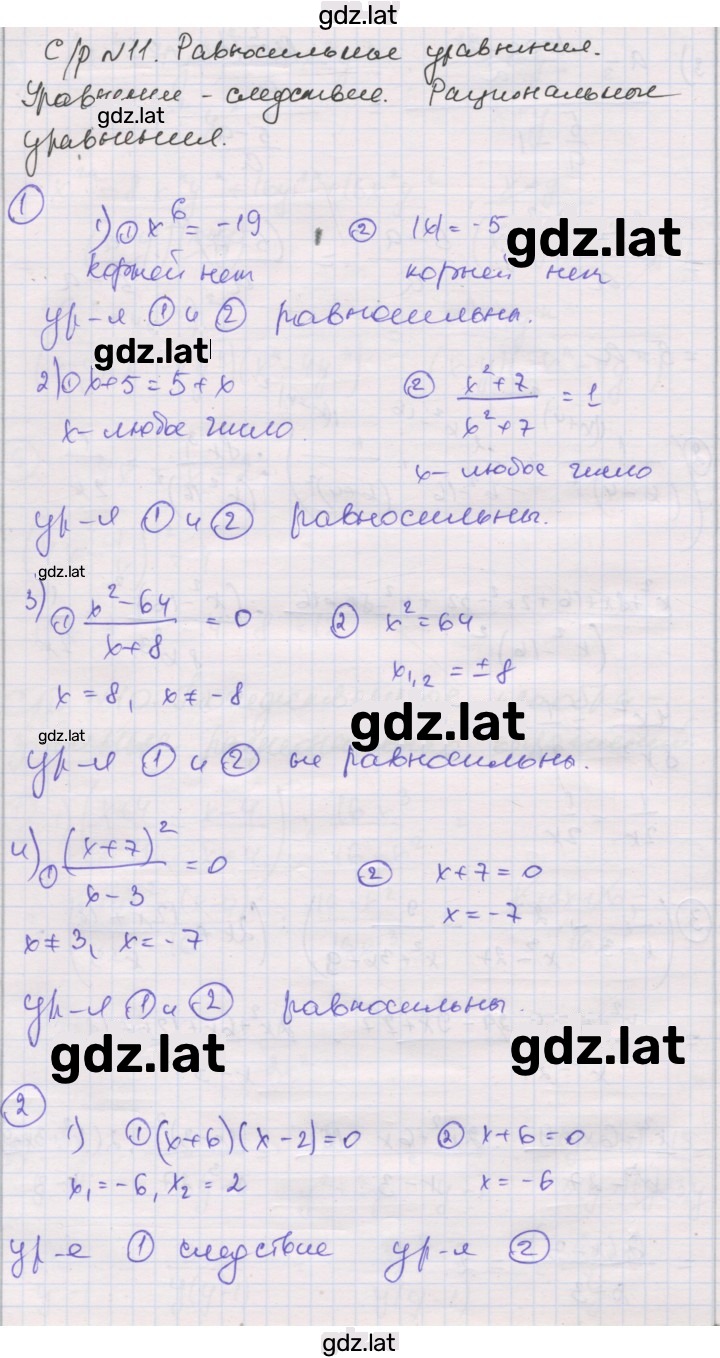 gdz.lat
С/р №11. Равносильные уравнения.
Уравнение - следствие. Рациональные
gdz.lat
уравнения.
① 1) ① x⁶ = -19 ② |x| = -5
gdz.lat
корней нет корней нет
ур-я ① и ② равносильны.
gdz.lat
2) ① x+5 = 5+x ② (x²+7)/(x²+7) = 1
x - любое число
x - любое число
ур-я ① и ② равносильны.
gdz.lat
3) ① (x²-64)/(x+8) = 0 ② x² = 64
x = 8, x ≠ -8 x₁,₂ = ±8
gdz.lat
gdz.lat
ур-я ① и ② не равносильны.
4) ① (x+7)²/(x-3) = 0 ② x+7 = 0
x ≠ 3, x = -7 x = -7
ур-я ① и ② равносильны.
gdz.lat
gdz.lat
②
1) ① (x+6)(x-2) = 0 ② x+6 = 0
x₁ = -6, x₂ = 2 x = -6
ур-е ① следствие ур-я ②
gdz.lat